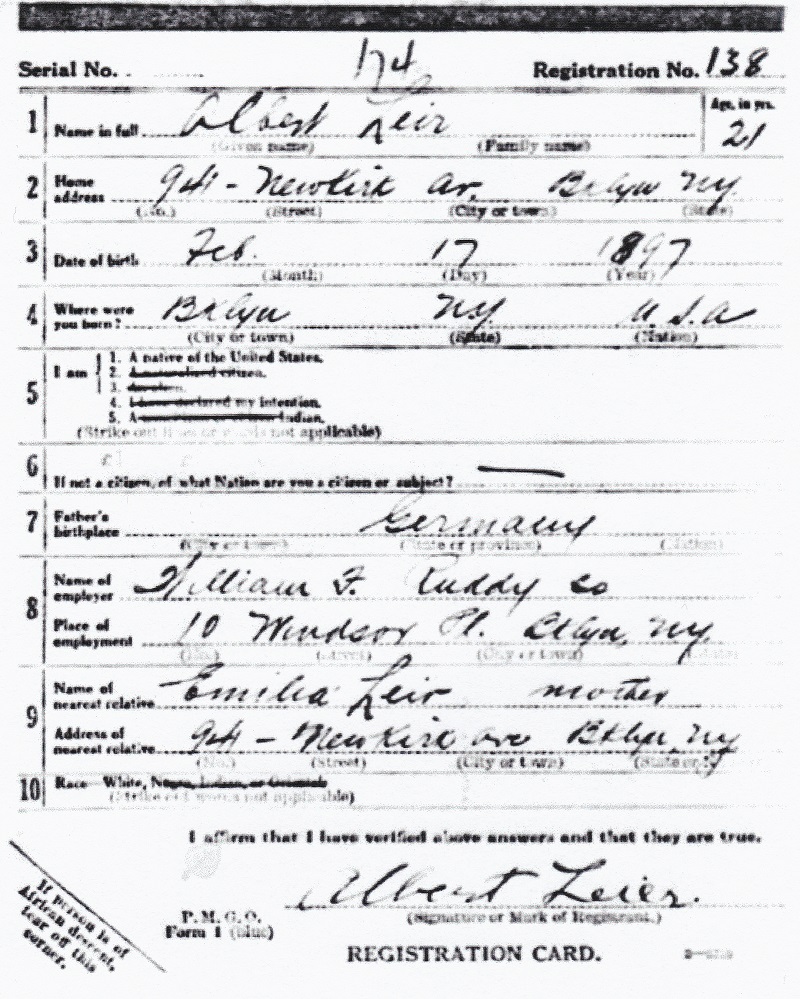 Serial No. 174 Registration No. 138
1 Name in full Albert Leir Age, in yrs. 21
(Given name) (Family name)
2 Home address 941 - Newkirk Av, Bklyn NY
(No.) (Street) (City or town) (State)
3 Date of birth Feb. 17 1897
(Month) (Day) (Year)
4 Where were you born? Bklyn NY U.S.A
(City or town) (State) (Nation)
5 I am
1. A native of the United States.
2. A naturalized citizen.
3. An alien.
4. I have declared my intention.
5. A Indian.
(Strike out lines or words not applicable)
6 If not a citizen, of what Nation are you a citizen or subject? —
7 Father's birthplace Germany
(City or town) (State or province) (Nation)
8 Name of employer William F. Ruddy Co
Place of employment 10 Windsor Pl. Bklyn, NY
(No.) (Street) (City or town) (State)
9 Name of nearest relative Emilia Leir mother
Address of nearest relative 941 - Newkirk ave Bklyn, NY
(No.) (Street) (City or town) (State or)
10 Race—White, Negro, Indian, or Oriental
(Strike out words not applicable)
I affirm that I have verified above answers and that they are true.
Albert Leier.
(Signature or Mark of Registrant.)
P. M. G. O.
Form 1 (blue)
REGISTRATION CARD.
If person is of
African descent,
tear off this
corner.